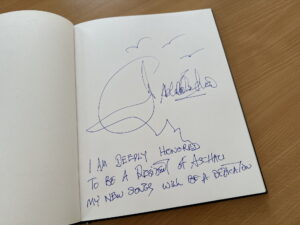 I AM DEEPLY HONORED
TO BE A RESIDENT OF
MY NEW SONGS WILL BE A DEDICATION